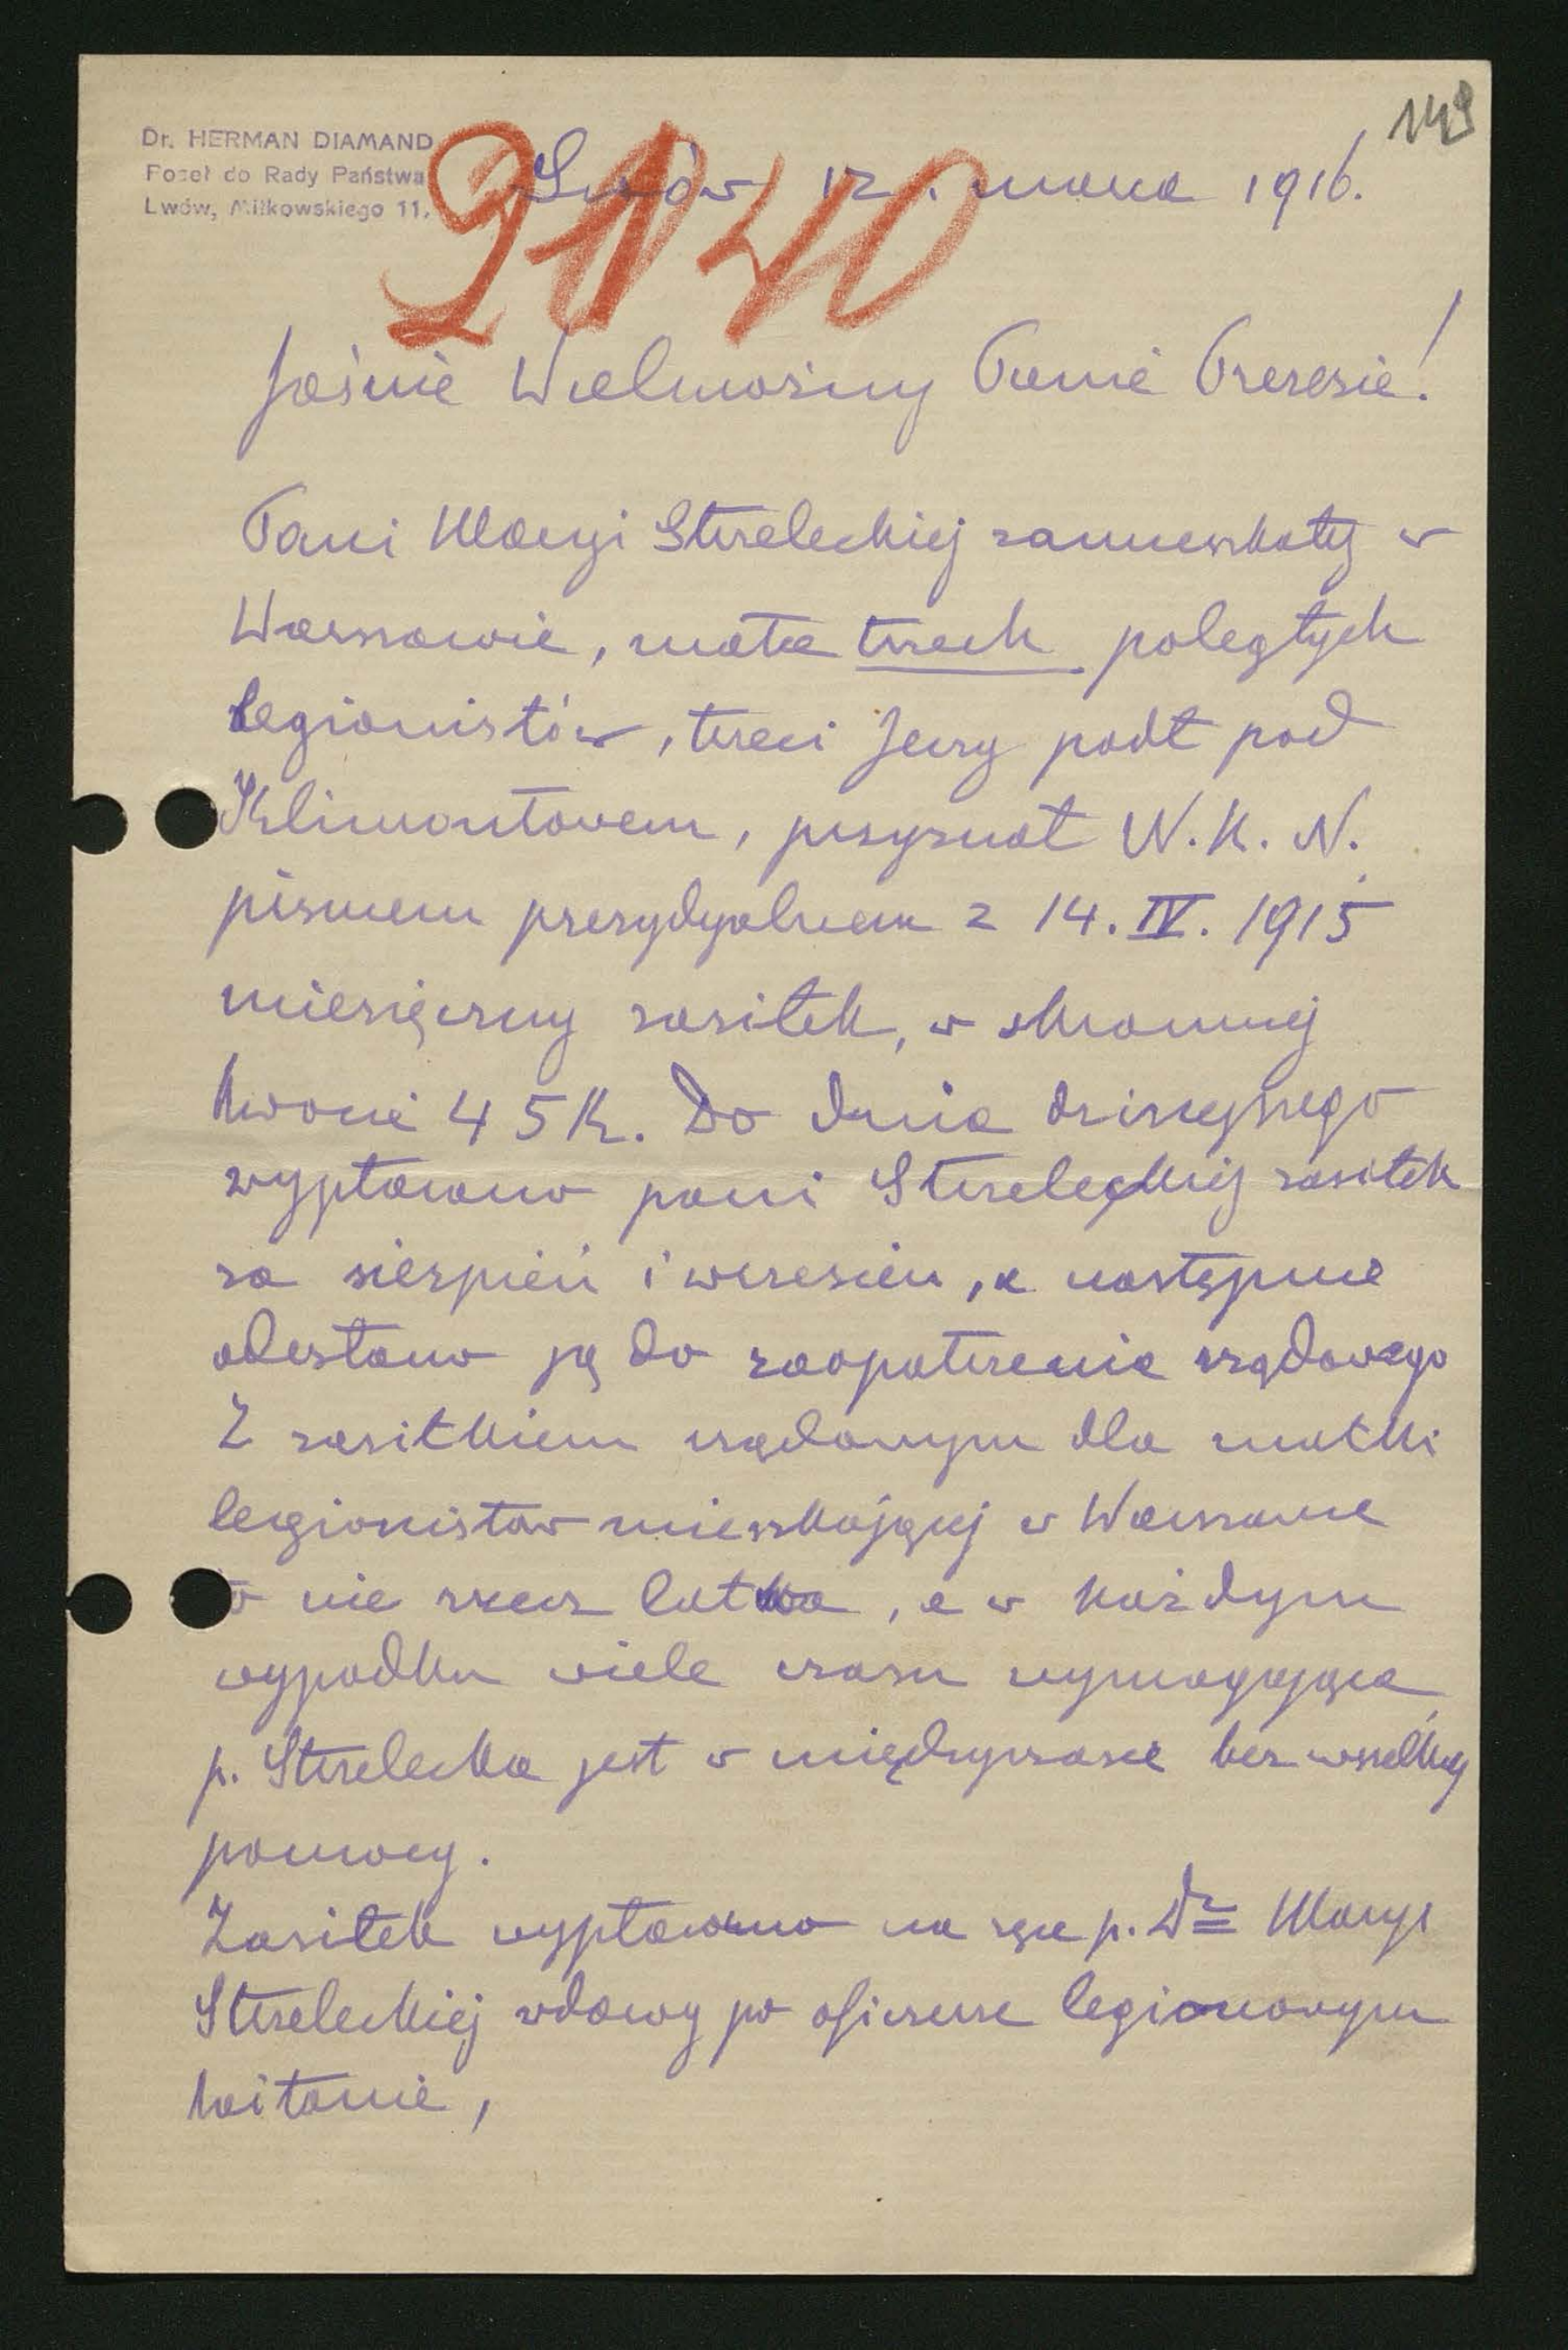 149
Dr. HERMAN DIAMAND
Poseł do Rady Państwa
Lwów, Miłkowskiego 11.
Lwów 12. marca 1916.
Jaśnie Wielmożny Panie Prezesie!
Pani Maryi Strzeleckiej zamieszkałej w
Warszawie, matce trzech poległych
legionistów, trzeci Jerzy padł pod
Klimontovem, przyznał N. K. N.
pismem prezydyalnem z 14. IV. 1915
miesięczny zasiłek, w skromnej
kwocie 45 K. Do dnia dzisiejszego
wypłacono pani Strzeleckiej zasiłek
za sierpień i wrzesień, a następnie
odesłano ją do zaopatrzenia rządowego
Z zasiłkiem rządowym dla matki
legionistów mieszkającej w Warszawie
to nie rzecz łatwa, a w każdym
wypadku wiele czasu wymagająca
p. Strzelecka jest w międzyczasie bez wszelkiej
pomocy.
Zasiłek wypłacano na ręce p. Dr Maryi
Strzeleckiej wdowy po oficerze legionowym